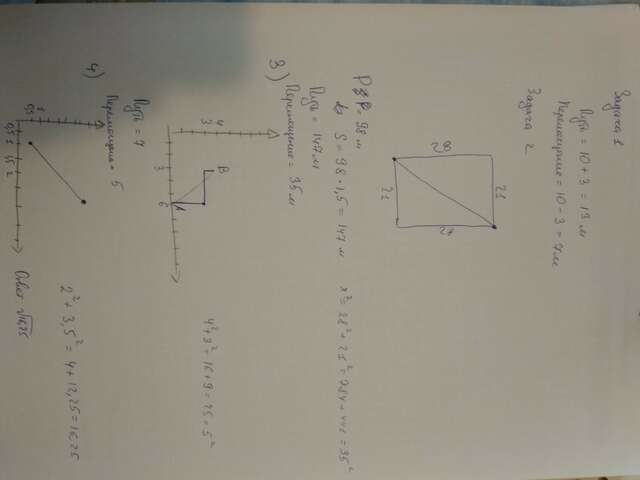 Задача 1
Путь = 10 + 3 = 13 м
Перемещение = 10 - 3 = 7 м
Задача 2
21
28
21
P = 98 м
S = 98 · 1,5 = 147 м
x² = 28² + 21² = 784 + 441 = 35²
Путь = 147 м
Перемещение = 35 м
3)
4
3
B
A
3
6
4² + 3² = 16 + 9 = 25 = 5²
Путь = 7
Перемещение = 5
4)
1
0,5
0,5
1
1,5
2
2² + 3,5² = 4 + 12,25 = 16,25
Ответ √16,25